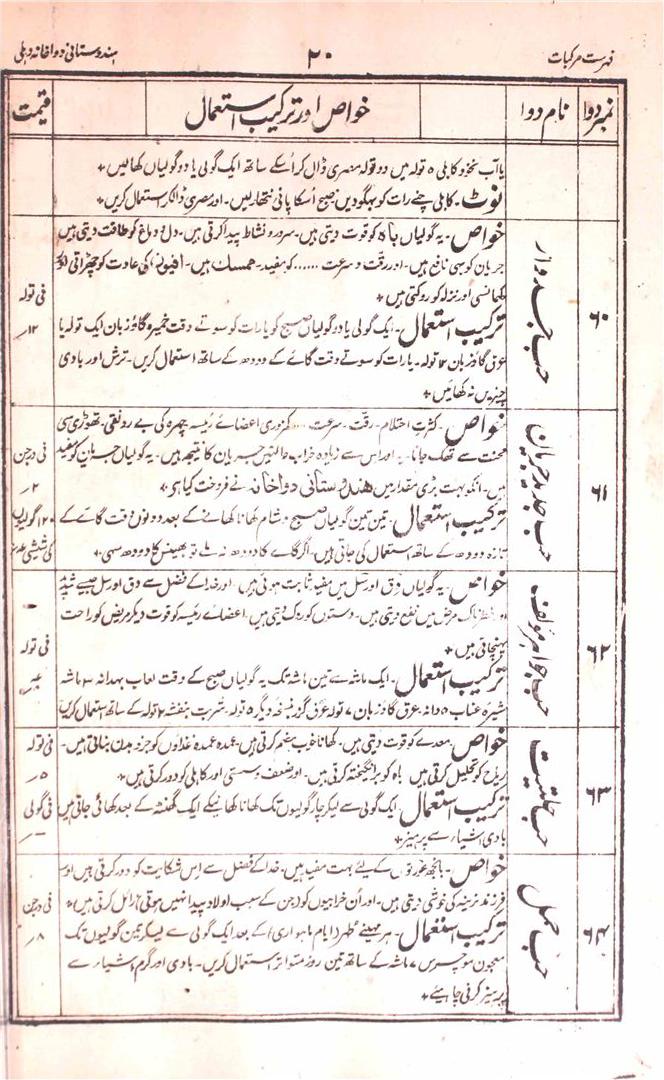 فہرست مرکبات ۲۰ ہندوستانی دواخانہ دہلی
نمبر دوا نام دوا خواص اور ترکیب استعمال قیمت
یا آب نخود کابلی ۵ تولہ میں دو تولہ مصری ڈال کر اسکے ساتھ ایک گولی یا دو گولیاں کھالیں +
نوٹ۔ کابلی چنے رات کو بھگو دیں صبح اُسکا پانی نتھار لیں۔ اور مصری ڈالکر استعمال کریں +
۶۰ حب جدوار
خواص۔ یہ گولیاں باہ کو قوت دیتی ہیں۔ سرور و نشاط پیدا کرتی ہیں۔ دل و دماغ کو طاقت دیتی ہیں
جریان کو سی نافع ہیں۔ اور رقت و سرعت ...... کو مفید۔ ممسک ہیں۔ افیون کی عادت کو چھڑاتی اور
کھانسی اور نزلہ کو روکتی ہیں +
ترکیب استعمال۔ ایک گولی یا دو گولیاں صبح کو یا رات کو سوتے وقت خمیرہ گاؤزبان ایک تولہ یا
عرق گاؤزبان ۱۲ تولہ۔ یا رات کو سوتے وقت گائے کے دودھ کے ساتھ استعمال کریں۔ ترش اور بادی
چیزیں نہ کھائیں +
فی تولہ
۱۲؍
۶۱ حب جدید جریان
خواص۔ کثرت احتلام۔ رقت۔ سرعت .... کمزوری اعضائے رئیسہ چہرہ کی بے رونقی۔ تھوڑی سی
محنت سے تھک جانا۔ یہ اور اس سے زیادہ خراب حالتیں جریان کا نتیجہ ہیں۔ یہ گولیاں جریان کو مفید
ہیں۔ انکو بہت بڑی مقدار میں ہندوستانی دواخانہ نے فروخت کیا ہی +
ترکیب استعمال۔ تین تین گولیاں صبح و شام کھانا کھانے کے بعد دونوں وقت گائے کے
تازہ دودھ کے ساتھ استعمال کی جاتی ہیں۔ اگر گائے کا دودھ نہ ملے تو بھینس کا دودھ سہی +
فی درجن
۲؍
۱۲۰ گولیوں
کی شیشی
۶۲ حب جواہر مؤلف
خواص۔ یہ گولیاں دق اور سل میں مفید ثابت ہوئی ہیں۔ اور خدا کے فضل سے دق اور سل جیسے شدید
اور خطرناک مرض میں نفع دیتی ہیں۔ دستوں کو روک دیتی ہیں۔ اعضائے رئیسہ کو قوت دیکر مریض کو راحت
پہنچاتی ہیں +
ترکیب استعمال۔ ایک ماشہ سے تین ماشہ تک یہ گولیاں صبح کے وقت لعاب بہدانہ ۳ ماشہ
شیرہ عناب ۵ دانہ عرق گاؤزبان ۷ تولہ عرق گزر بنسخہ دیگر ۵ تولہ۔ شربت بنفشہ ۲ تولہ کے ساتھ استعمال کریں
فی تولہ
۶۳ حب حلتیت
خواص۔ معدے کو قوت دیتی ہیں۔ کھانا خوب ہضم کرتی ہیں۔ عمدہ عمدہ غذاؤں کو جزو بدن بناتی ہیں۔
ریاح کو تحلیل کرتی ہیں۔ باہ کو برانگیختہ کرتی ہیں۔ اور ضعف و سستی اور کاہلی کو دور کرتی ہیں +
ترکیب استعمال۔ ایک گولی سے لیکر چار گولیوں تک کھانا کھانیکے ایک گھنٹہ کے بعد کھائی جاتی ہیں
بادی اشیاء سے پرہیز +
فی تولہ
۵؍
فی گولی
۶۴ حب حمل
خواص۔ بانجھ عورتوں کے لیئے بہت مفید ہیں۔ خدا کے فضل سے اس شکایت کو دور کرتی ہیں اور
فرزند نرینہ کی خوشی دیتی ہیں۔ اور اُن خرابیوں کو (جن کے سبب اولاد پیدا نہیں ہوتی) زائل کرتی ہیں +
ترکیب استعمال۔ ہر مہینے طہر (ایام ماہواری) کے بعد ایک گولی سے لیکر تین گولیوں تک
معجون موچرس ۷ ماشہ کے ساتھ تین روز متواتر استعمال کریں۔ بادی اور گرم اشیاء سے
پرہیز کرنی چاہیئے +
فی درجن
۸؍